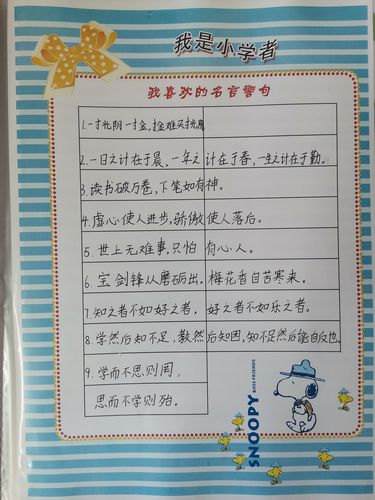 我是小学者
我喜欢的名言警句
1.一寸光阴一寸金,寸金难买寸光阴
2.一日之计在于晨,一年之计在于春,一生之计在于勤。
3.读书破万卷,下笔如有神。
4.虚心使人进步,骄傲使人落后。
5.世上无难事,只怕有心人。
6.宝剑锋从磨砺出。梅花香自苦寒来。
7.知之者不如好之者,好之者不如乐之者。
8.学然后知不足,教然后知困,知不足然后能自反也。
9.学而不思则罔,
思而不学则殆。
SNOOPY
&HIS FRIENDS